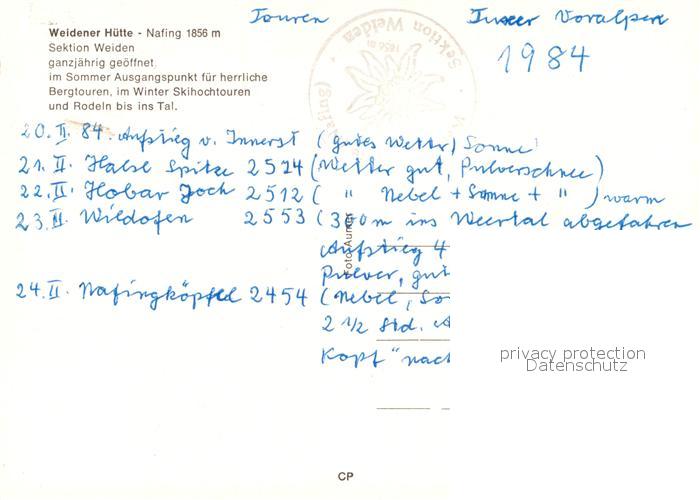 Touren Tuxer Voralpen
1984
Weidener Hütte - Nafing 1856 m
Sektion Weiden
ganzjährig geöffnet,
im Sommer Ausgangspunkt für herrliche
Bergtouren, im Winter Skihochtouren
und Rodeln bis ins Tal.
Sektion Weiden
1856 m
20. II. 84. Aufstieg v. Innerst (gutes Wetter) Sonne
21. II. Halsl Spitze 2574 (Wetter gut, Pulverschnee)
22. II. Hobar Joch 2512 ( " Nebel + Sonne + " ) warm
23. II. Wildofen 2553 (300m ins Weertal abgefahren
Aufstieg 4
Pulver, gut
24. II. Nafingköpfel 2454 (Nebel, So
2 1/2 Std. A
Kopf" nach
privacy protection
Datenschutz
CP